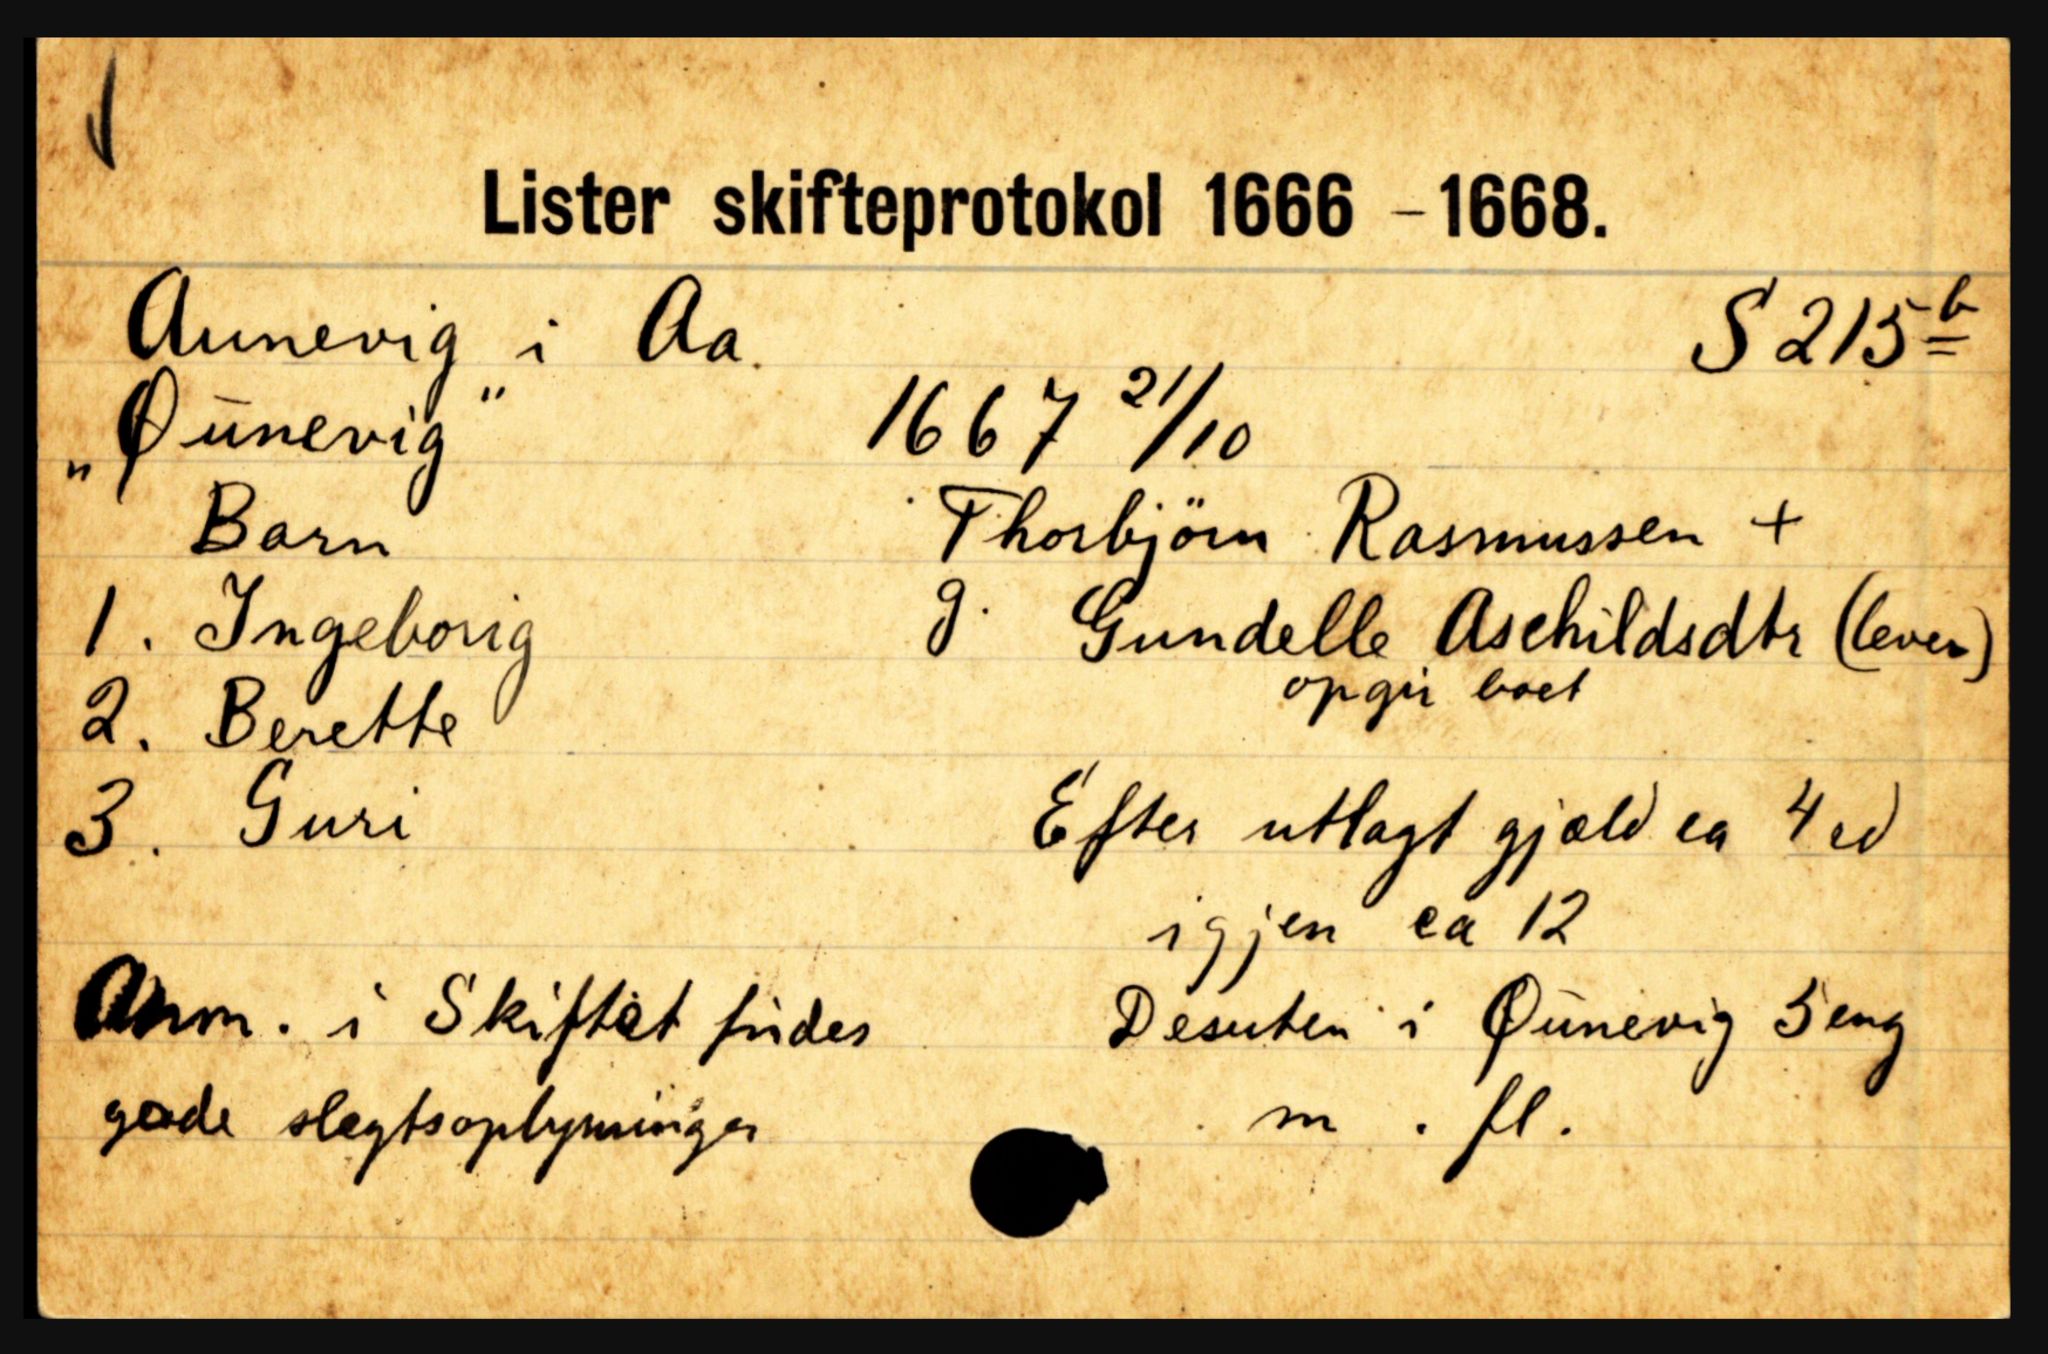 Lister skifteprotokol 1666 - 1668.
Aunevig i Aa. S 215 b
„Øunevig" 1667 21/10
Barn Thorbjörn Rasmussen +
1. Ingeborig g. Gundelle Aschildsdtr (lever)
opgir boet
2. Berette
3. Guri Efter utlagt gjæld ca 4 rd
igjen ca 12
Anm. i Skiftet findes Desuten i Øunevig 5 eng
gode slegtsoplysninger m. fl.